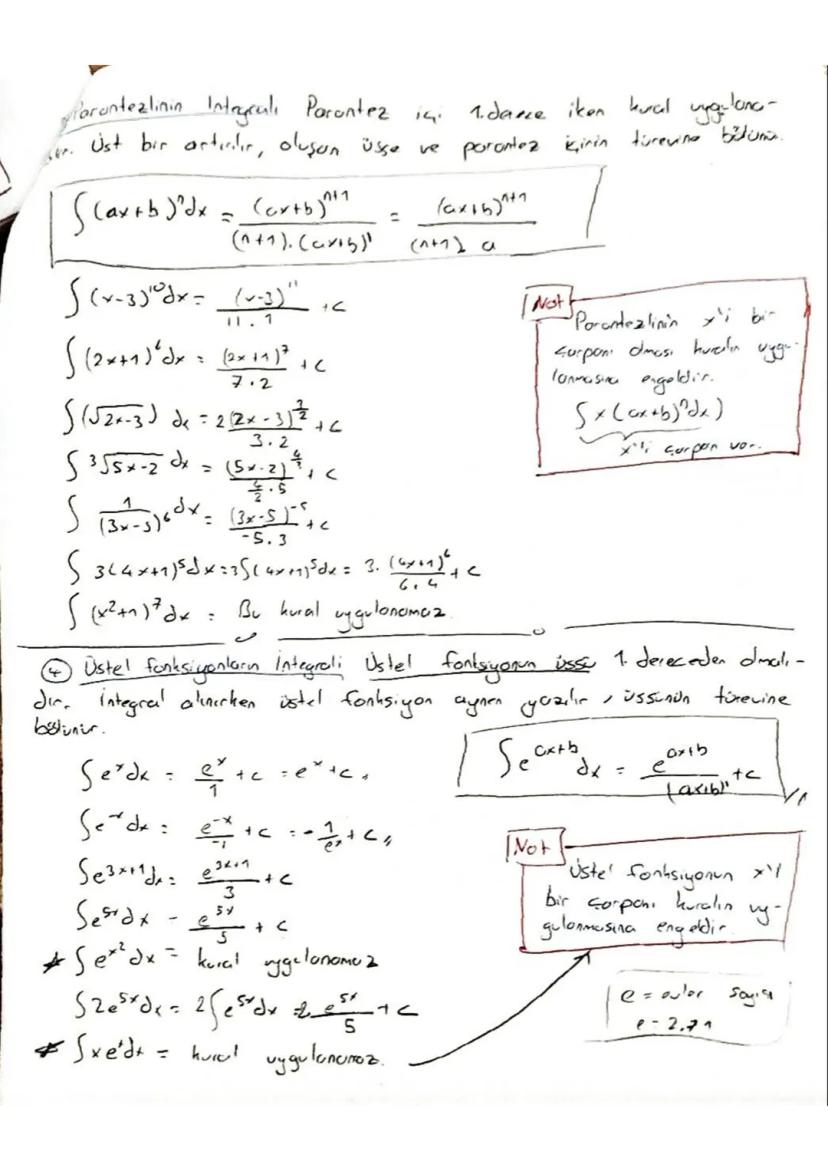 Parantezlinin Integrali Parantez içi 1.derece iken kural uygulana-
Üst bir artırılır, oluşan üsse ve parantez içinin türevine bölünür.
∫(ax+b)ⁿdx = (ax+b)ⁿ⁺¹/(n+1).(ax+b)' = (ax+b)ⁿ⁺¹/(n+1).a
∫(x-3)¹⁰dx = (x-3)¹¹/11.1 +c
∫(2x+1)⁶dx = (2x+1)⁷/7.2 +c
∫(√2x-3) dx = 2(2x-3)^(3/2)/3.2 +c
∫³√5x-2 dx =
∫1/(3x-5)⁶ dx = (3x-5)⁻⁵/-5.3 +c
∫3(4x+1)⁵dx = 3∫(4x+1)⁵dx = 3.(4x+1)⁶/6.4 +c
∫(x²+1)⁷dx = Bu kural uygulanamaz.
Not
Parantezlinin x'li bir
çarpanı olması kuralın uygu-
lanmasına engeldir.
∫x(ax+b)ⁿdx)
x'li çarpan var.
④ Üstel fonksiyonların İntegrali Üstel fonksiyonun üssü 1. dereceden olmalı-
dır. İntegral alınırken üstel fonksiyon aynen yazılır, üssünün türevine
bölünür.
∫e^(ax+b) dx = e^(ax+b)/(ax+b)' +c
∫eˣdx = eˣ/1 +c = eˣ+c
∫e⁻ˣdx = e⁻ˣ/-1 +c = -1/eˣ +c
∫e³ˣ⁺¹dx = e³ˣ⁺¹/3 +c
∫e⁵ˣdx = e⁵ˣ/5 +c
* ∫e^(x²)dx = kural uygulanamaz
∫2e⁵ˣdx = 2∫e⁵ˣdx = 2 e⁵ˣ/5 +c
* ∫xeˣdx = kural uygulanamaz.
Not
Üstel fonksiyonun x'li
bir çarpanı kuralın uy-
gulanmasına engeldir.
e = euler sayısı
e = 2,71